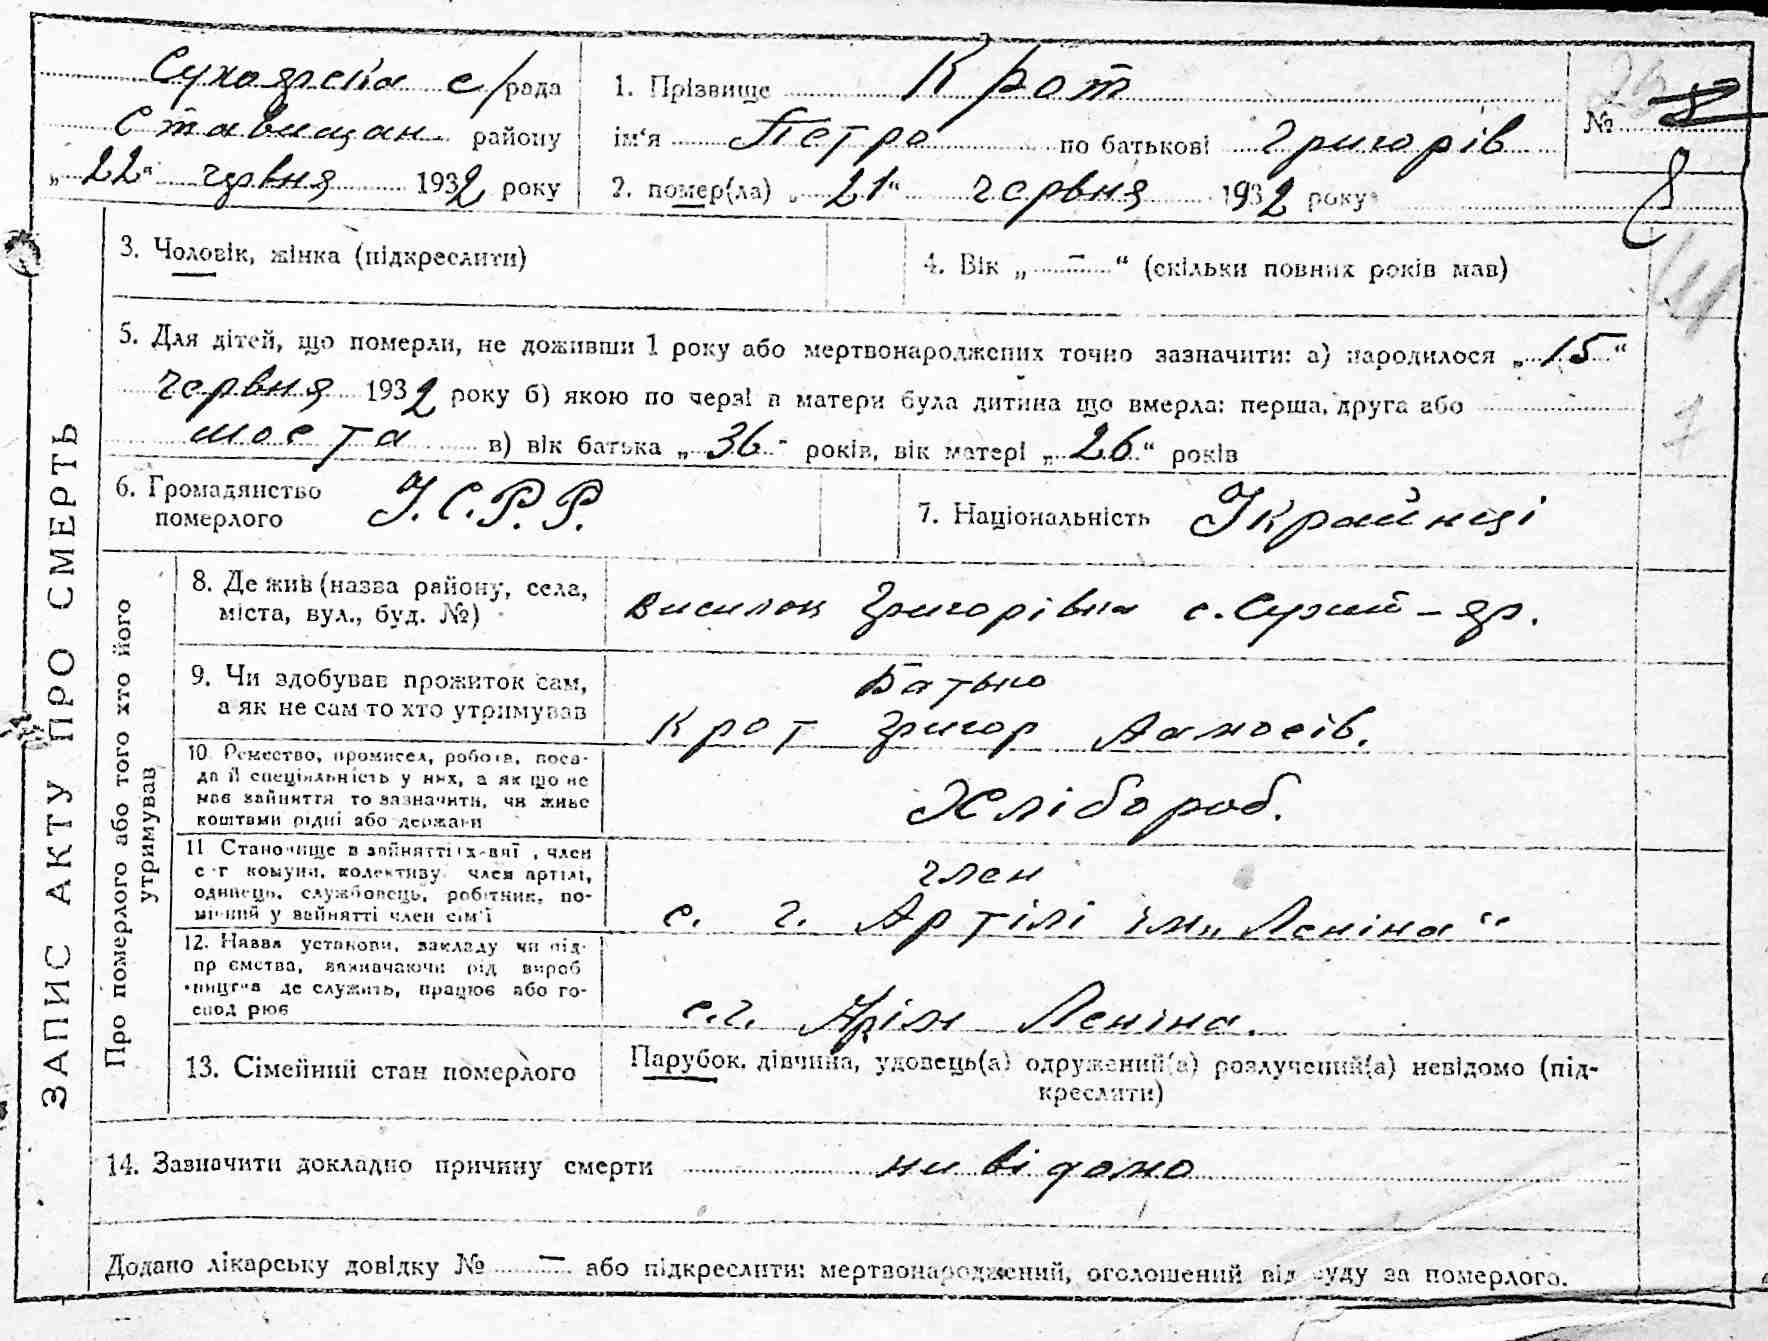 Сухоярска с/рада
Ставищан. району
„22“ червня 1932 року
1. Прізвище Крот
ім'я Петро по батькові Григорів
2. помер(ла) „21“ червня 1932 року
№ 8
3. Чоловік, жінка (підкреслити)
4. Вік „ — “ (скільки повних років мав)
5. Для дітей, що померли, не доживши 1 року або мертвонароджених точно зазначити: а) народилося „15“
червня 1932 року б) якою по черзі в матери була дитина що вмерла: перша, друга або
шоста в) вік батька „36“ років, вік матері „26“ років
6. Громадянство
померлого У.С.Р.Р.
7. Національність Українці
ЗАПИС АКТУ ПРО СМЕРТЬ
Про померлого або того хто його
утримував
8. Де жив (назва району, села,
міста, вул., буд. №)
Висилок Григорівка с. Сухий-яр.
9. Чи здобував прожиток сам,
а як не сам то хто утримував
Батько
Крот Григор
10. Ремество, промисел, робота, поса-
да й спеціяльність у них, а як що не
має зайняття то зазначити, чи живе
коштами рідні або держави
Хлібороб.
11 Становище в зайнятті член
с-г комуни, колективу член артілі,
одинець, службовець, робітник, по-
мічний у зайнятті член сім'ї
член
с. г. Артілі ім. „Леніна“
12. Назва установи, закладу чи під-
пр ємства, зазначаючи рід вироб
ництва де служить, працює або го-
спод рює
с.г. Леніна.
13. Сімейний стан померлого
Парубок, дівчина, удовець(а) одружений(а) розлучений(а) невідомо (під-
креслити)
14. Зазначити докладно причину смерти ни відомо
Додано лікарську довідку № — або підкреслити: мертвонароджений, оголошений від суду за померлого.